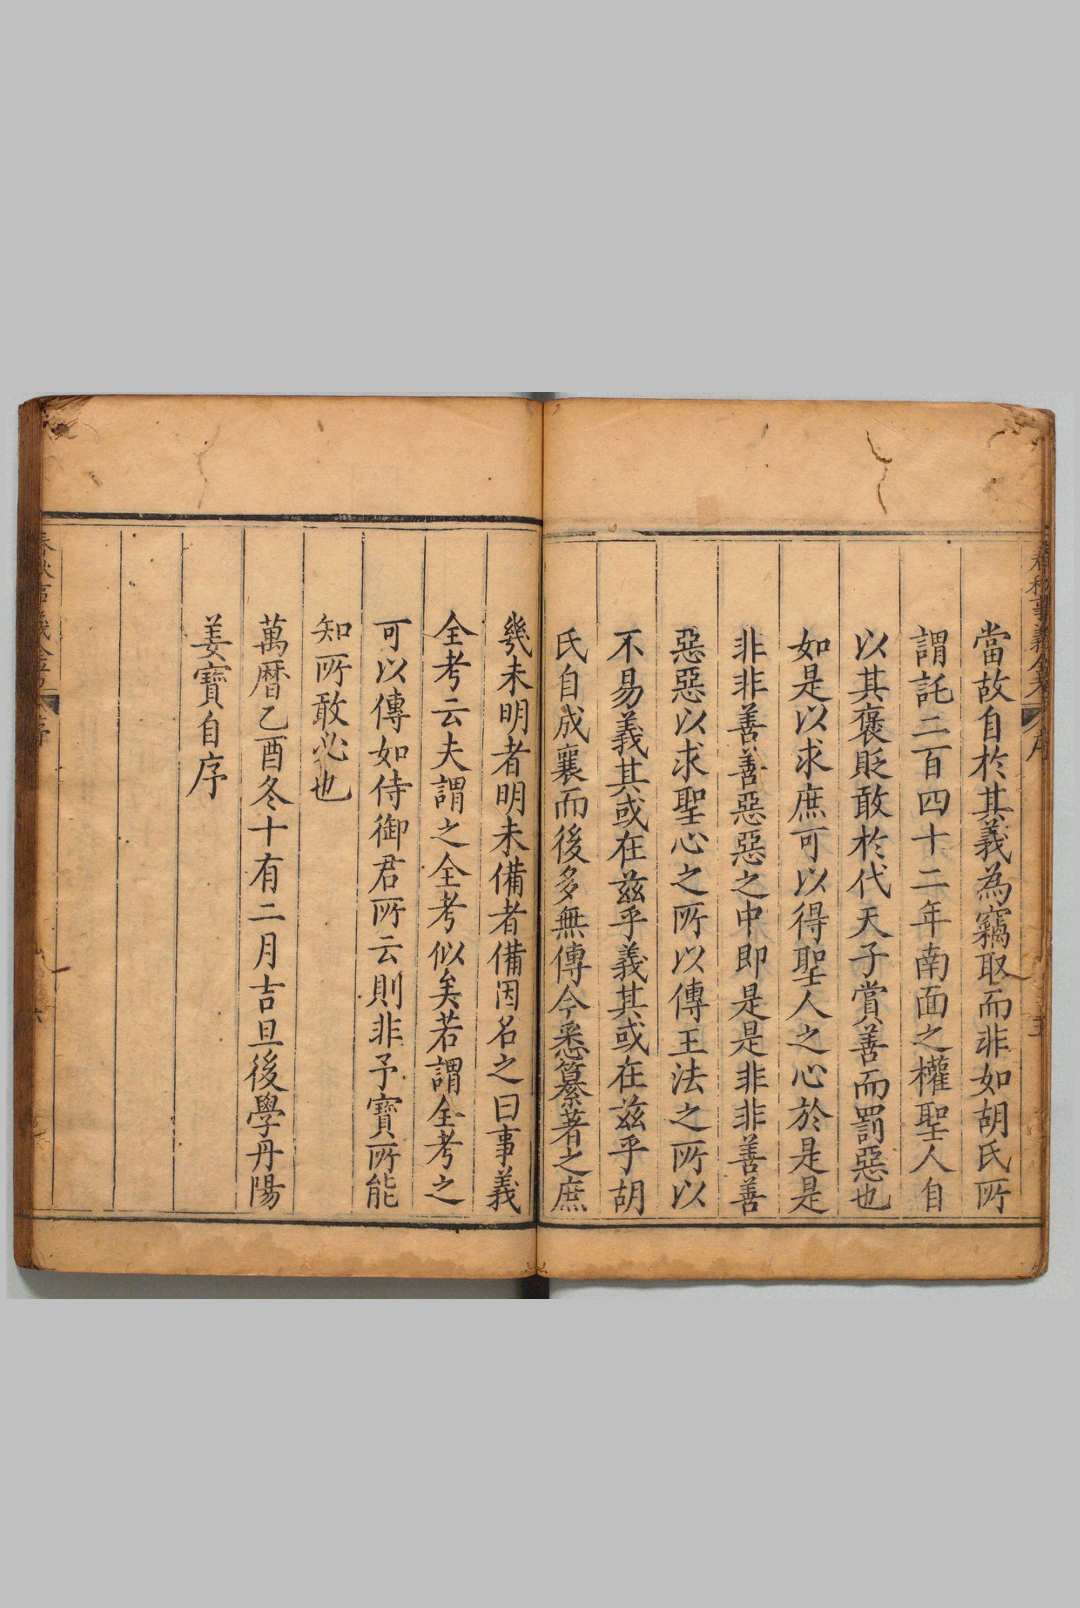 春秋事義全考 序
當故自於其義為竊取而非如胡氏所
謂託二百四十二年南面之權聖人自
以其褒貶敢於代天子賞善而罰惡也
如是以求庶可以得聖人之心於是是
非非善善惡惡之中即是是非非善善
惡惡以求聖心之所以傳王法之所以
不易義其或在茲乎義其或在茲乎胡
氏自成襄而後多無傳今悉纂著之庶
幾未明者明未備者備因名之曰事義
全考云夫謂之全考似矣若謂全考之
可以傳如侍御君所云則非予寶所能
知所敢必也
萬曆乙酉冬十有二月吉旦後學丹陽
姜寶自序
春秋事義全考 序